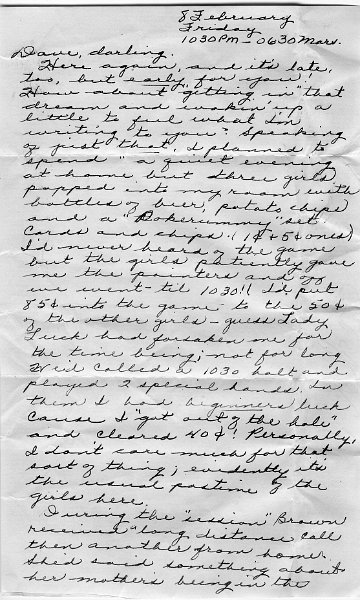 8 February
Friday
1030PM - 0630 Mars.
Dave, darling.
Here again, and it's late,
too, but early for you!
How about "getting in" that
dream and wakin' up a
little to feel what I'm
writing to you? Speaking
of just that, I planned to
spend "a quiet evening
at home but three girls
popped into my room with
bottles of beer, potato chips
and a "Pokerummy" set.
Cards and chips (1¢ + 5¢ ones)
I'd never heard of the game
but the girls patiently gave
me the pointers and off
we went - til 1030!! I'd put
85¢ into the game to the 50¢
of the other girls - guess Lady
Luck had forsaken me for
the time being; not for long
We'd called a 1030 halt and
played 2 special hands. In
them I had beginners luck
cause I "got out of the hole"
and cleared 40¢! Personally,
I don't care much for that
sort of thing; evidently its
the usual pastime of the
girls here.
During the "session" Brown
received "long distance call
then another from home.
She'd said something about
her mothers being in the